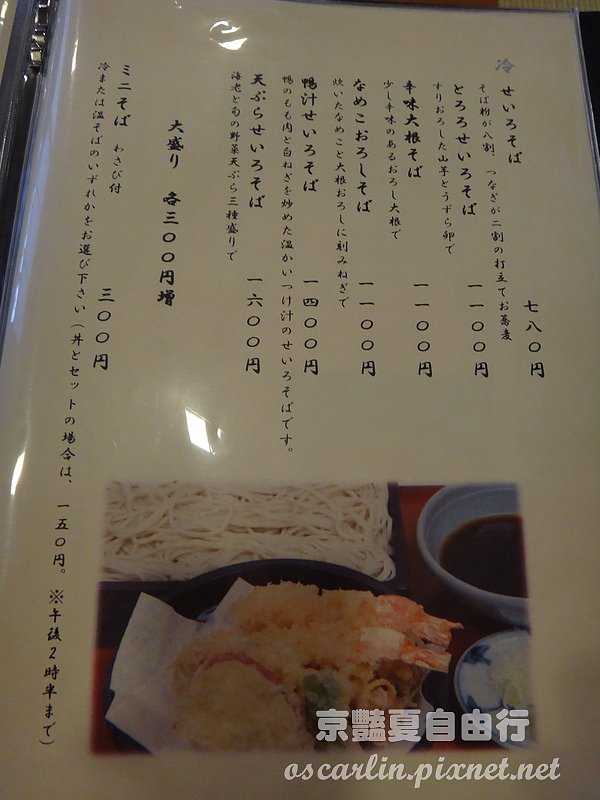 冷
せいろそば 七八〇円
そば粉が八割、つなぎが二割の打立てお蕎麦
とろろせいろそば 一一〇〇円
すりおろした山芋とうずら卵で
辛味大根そば 一一〇〇円
少し辛味のあるおろし大根で
なめこおろしそば 一一〇〇円
炊いたなめこと大根おろしに刻みねぎで
鴨汁せいろそば 一四〇〇円
鴨のもも肉と白ねぎを炒めた温かいつけ汁のせいろそばです。
天ぷらせいろそば 一六〇〇円
海老と旬の野菜天ぷら三種盛りで
大盛り 各三〇〇円増
ミニそば わさび付 三〇〇円
冷または温そばのいずれかをお選び下さい（丼とセットの場合は、一五〇円。※午後2時半まで）
京豔夏自由行
oscarlin.pixnet.net